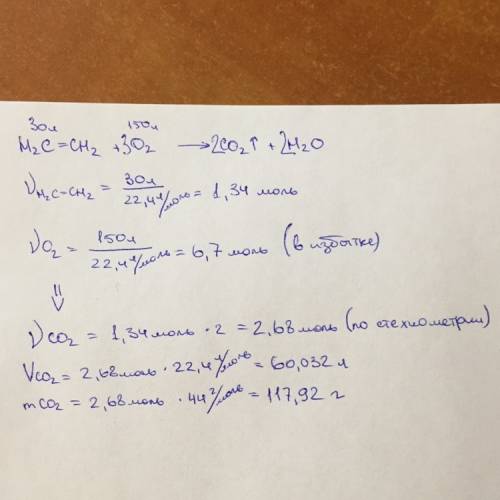 30л 150л
H₂C=CH₂ + 3O₂ → 2CO₂↑ + 2H₂O
ν H₂C=CH₂ = 30л / 22,4 л/моль = 1,34 моль
ν O₂ = 150л / 22,4 л/моль = 6,7 моль (в избытке)
⇓
ν CO₂ = 1,34 моль · 2 = 2,68 моль (по стехиометрии)
V CO₂ = 2,68 моль · 22,4 л/моль = 60,032 л
m CO₂ = 2,68 моль · 44 г/моль = 117,92 г